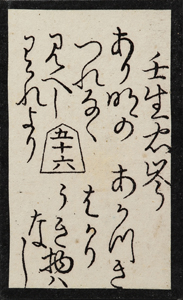 壬生忠岑
あり明の
つれなく
見へし
わかれより
五十六
あかつき
はかり
うき物ハ
なし